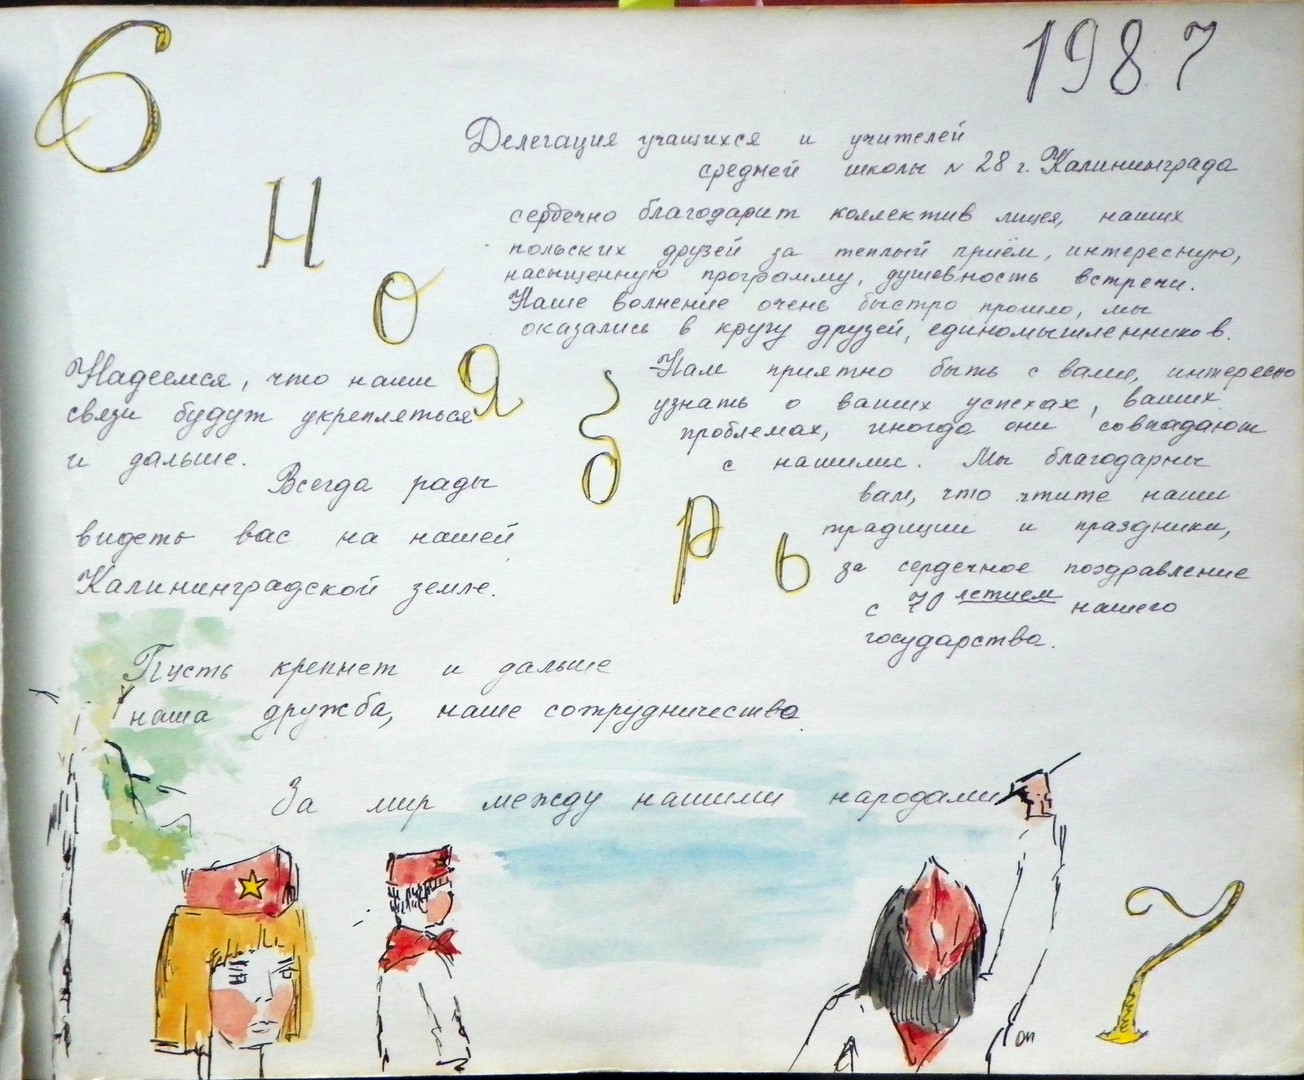 6
1987
ноябрь
7
Делегация учащихся и учителей
средней школы N 28 г. Калининграда
сердечно благодарит коллектив лицея, наших
польских друзей за теплый приём, интересную,
насыщенную программу, душевность встречи.
Наше волнение очень быстро прошло, мы
оказались в кругу друзей, единомышленников.
Нам приятно быть с вами, интересно
узнать о ваших успехах, ваших
проблемах, иногда они совпадают
с нашими. Мы благодарны
вам, что чтите наши
традиции и праздники,
за сердечное поздравление
с 70 летием нашего
государства.
Надеемся, что наши
связи будут укрепляться
и дальше.
Всегда рады
видеть вас на нашей
Калининградской земле.
Пусть крепнет и дальше
наша дружба, наше сотрудничество.
За мир между нашими народами